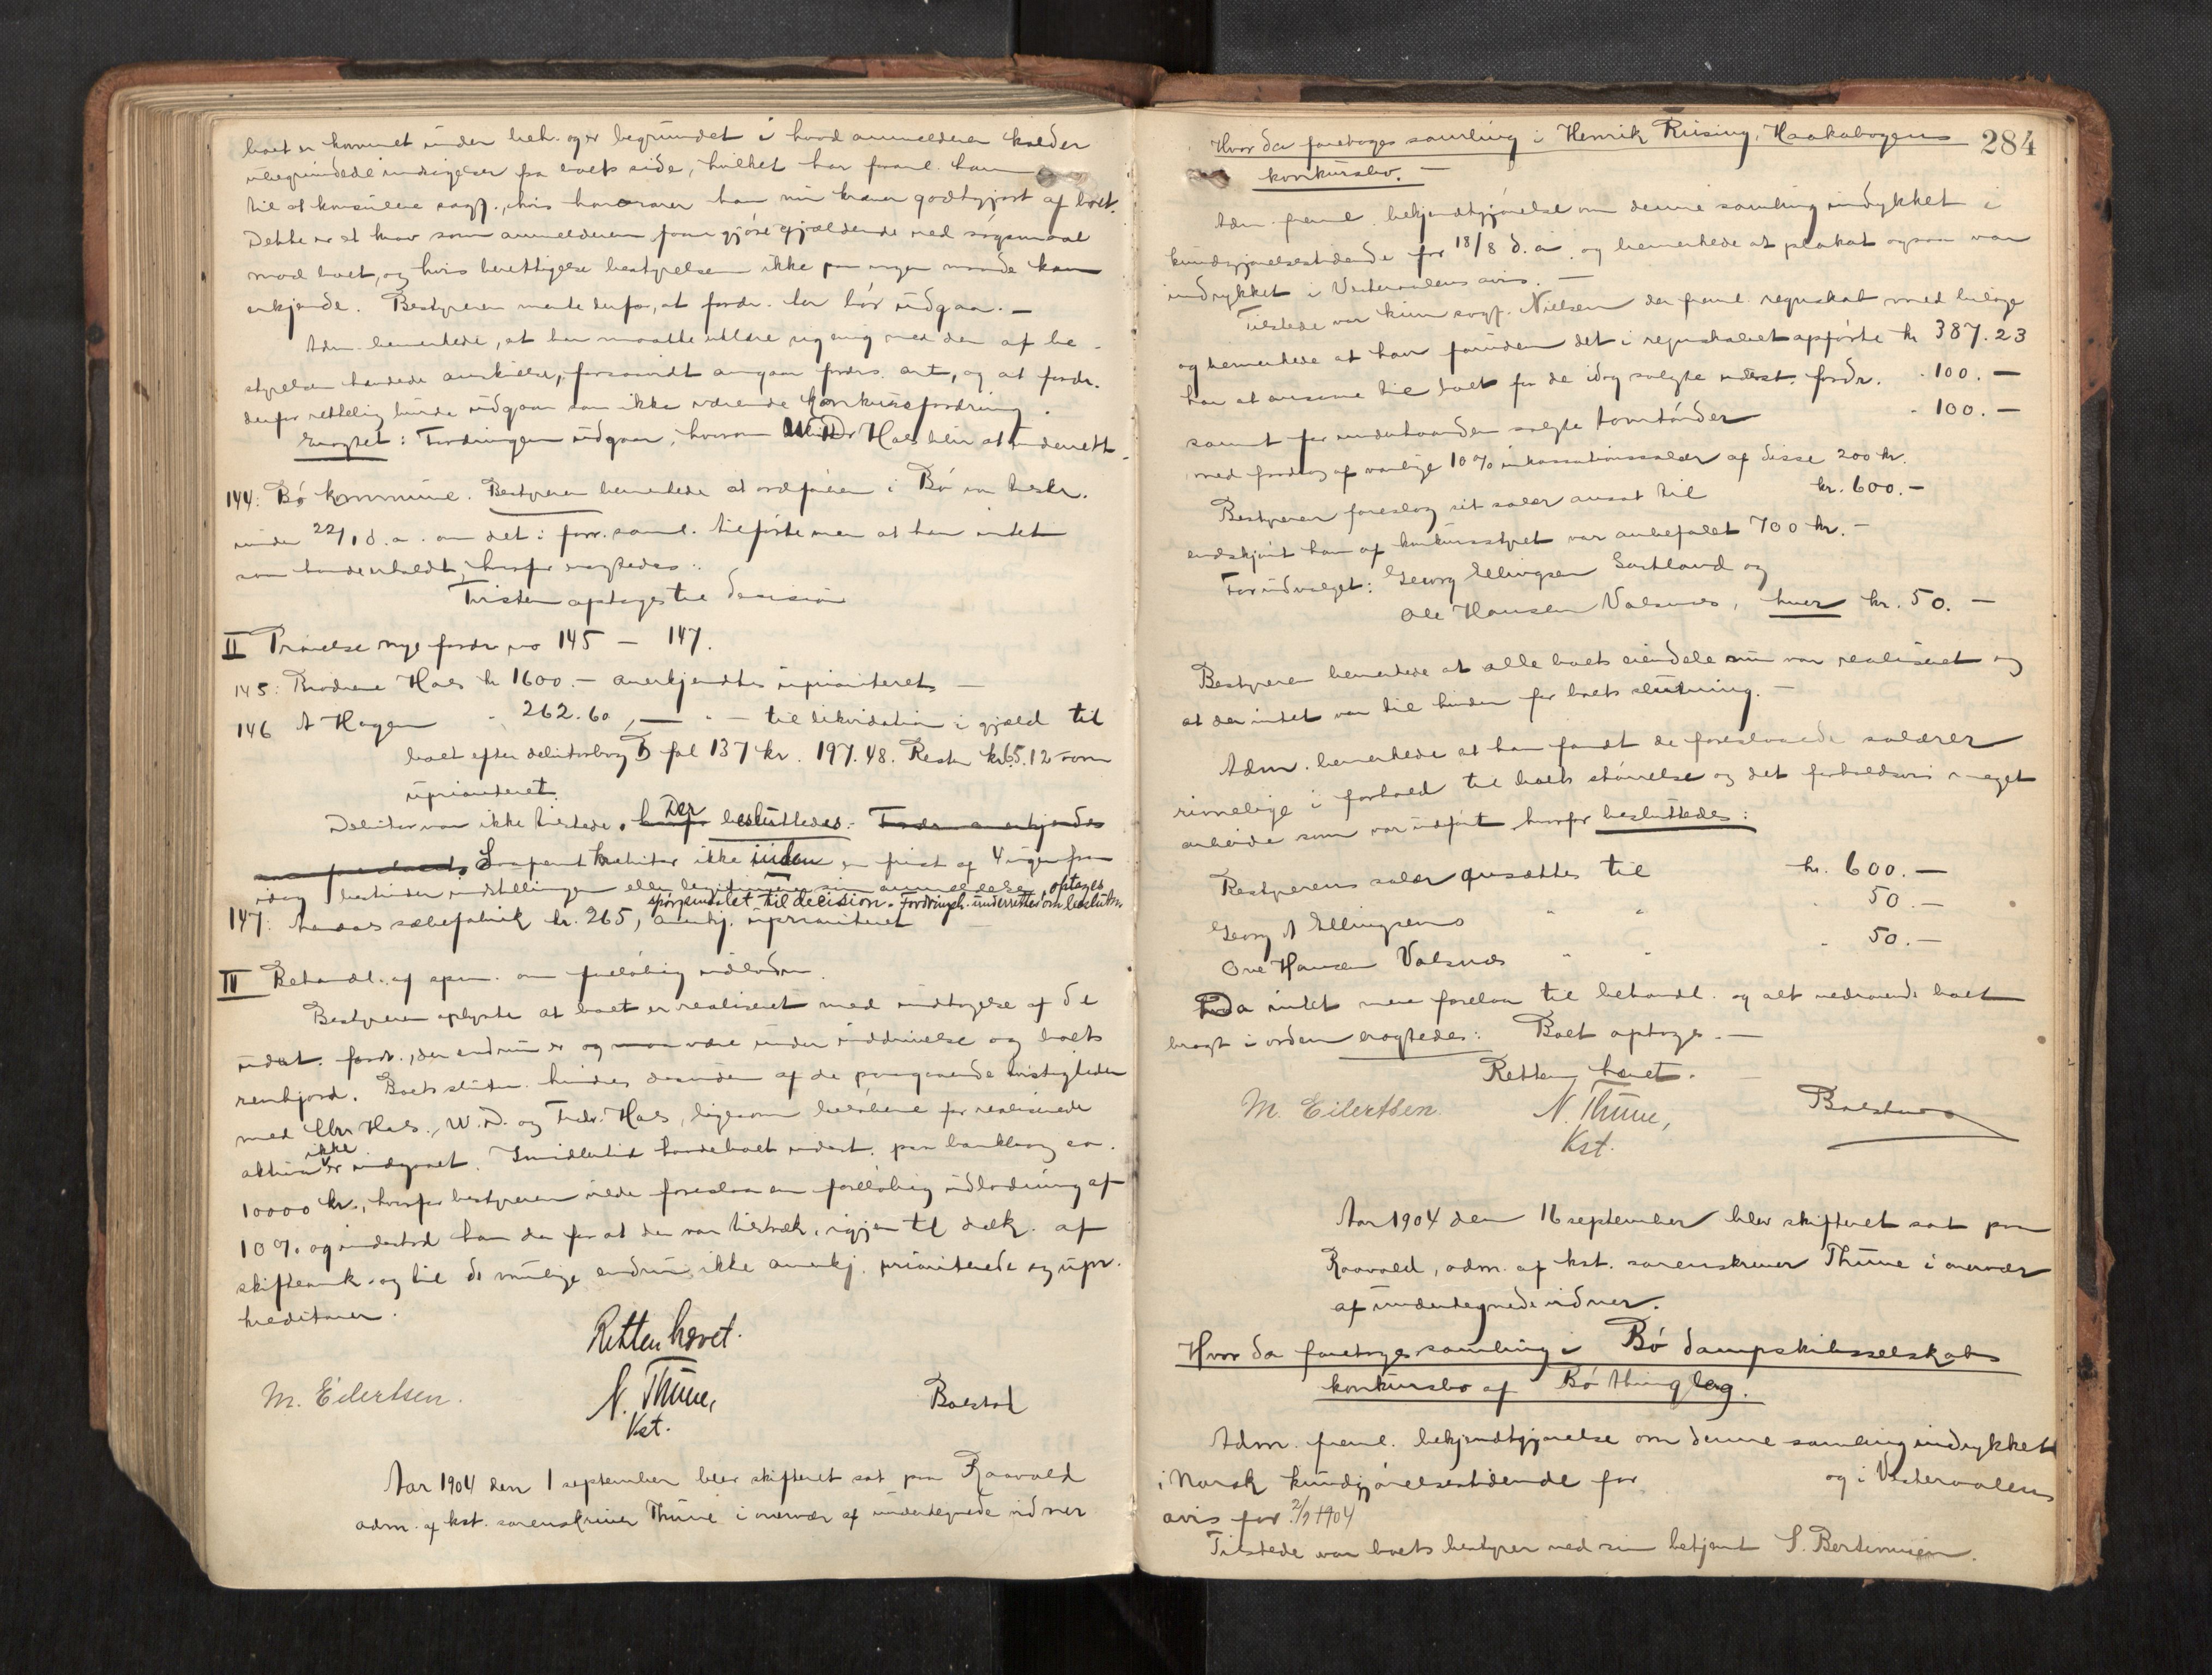 boet er kommet under beh. og er begrundet i hvad anmelderen kalder
ubegrundede indsigelser fra boets side, hvilket har foranl. ham
til at konsulere sagf., hvis honorarer han nu kræver godtgjort af boet.
Dette er et krav som anmelderen faar gjøre gjældende ved søgsmaal
mod boet, og hvis berettigelse bestyrelsen ikke paa nogen maade kan
erkjende. Bestyreren mente derfor, at fordr. her bør udgaa. —
Adm. bemerkede, at han maatte erklære sig enig med den af be-
styrelsen hævdede anskuelse, forsaavidt angaar fordrs. art, og at fordr.
derfor rettelig burde udgaa som ikke værende konkursfordring.
Eragtet: Fordringen udgaar, hvorom W. D. Hals blir at underrett.
144: Bø kommune. Bestyreren bemerkede at ordføreren i Bø var beskr.
under 22/1 d.a. om det i forr. saml. tilførte men at han intet
svar havde erholdt, hvorfor eragtedes:
Tvisten optages til decision
II Prøvelse nye fordr no 145 — 147.
145: Brødrene Hals kr 1600.— anerkjendtes uprioriteret —
146 A Hagen " 262.60, — " — til likvidation i gjæld til
boet efter debitorbog B fol 137 kr. 197.48. Resten kr 65.12 som
uprioriteret.
Debitor var ikke tilstede. Der besluttedes: Fordr. anerkjendes
Saafremt kreditor ikke inden en frist af 4 uger fra
idag bestrider indstillingen eller legitimerer sin anmeldelse, optages
spørsmaalet til decision. Fordringsh. underrettes om beslutn.
147: Lændas sæbefabrik kr. 265, anerkj. uprioriteret —
III Behandl. af spm. om foreløbig udlodn.
Bestyreren oplyste at boet er realiseret med undtagelse af de
udest. fordr., der endnu er og maa være under inddrivelse og boets
renhjord. Boets slutn. hindres desuden af de paagaaende tvistigheder
med Chr. Hals, W. D. og Fredr. Hals, ligesom beløbene for realiserede
aktiva ikke er indgaaet. Imidlertid havde boet indest. paa bankbog ca.
10000 kr., hvorfor bestyreren vilde foreslaa en foreløbig udlodning af
10% og indestod han da for at der var tilstræk. igjen til dæk. af
skifteomk. og til de mulige endnu ikke anerkj. prioriterede og upr.
kreditorer.
Retten hævet.
M. Eilertsen. N. Thune, Bolstad
Kst.
Aar 1904 den 1 september blev skifteret sat paa Raavold
adm. af kst. sorenskriver Thune i overvær af undertegnede vidner
284
Hvor da foretoges samling i Henrik Riising, Haakabogens
konkursbo. —
Adm. freml. bekjendtgjørelse om denne samling indrykket i
kundgjørelsestidende for 18/8 d.a. og bemerkede at plakat ogsaa var
indrykket i Vesteraalens avis. —
Tilstede var kun sagf. Nielsen der freml. regnskab med bilage
og bemerkede at han foruden det i regnskabet opførte kr 387.23
har at anvise til boet for de idag solgte udest. fordr. " 100. —
samt for underhaanden solgte tomtønder " 100. —
med fradrag af vanlige 10% inkassationssalær af disse 200 kr.
Bestyreren foreslog sit salær ansat til kr. 600. —
endskjønt han af konkursstyret var anbefalet 700 kr. —
For udvalget: Georg Ellingsen Sortland og
Ole Hansen Valsnes, hver kr. 50. —
Bestyreren bemerkede at alle boets eiendele nu var realiseret og
at der intet var til hinder for boets slutning. —
Adm. bemerkede at han fandt de foreslaaede salærer
rimelige i forhold til boets størrelse og det forholdsvis meget
arbeide som var udført, hvorfor besluttedes:
Bestyrerens salær ansættes til kr. 600. —
Georg A Ellingsens " " " 50. —
Ove Hansen Valsnes " " " 50. —
Da intet mere forelaa til behandl. og alt vedrørende boet
bragt i orden eragtedes: Boet optages. —
Retten hævet. —
M. Eilertsen. N. Thune, Bolstad
Kst.
Aar 1904 den 16 september blev skifteret sat paa
Raavold, adm. af kst. sorenskriver Thune i overvær
af undertegnede vidner.
Hvor da foretoges samling i Bø dampskibsselskabs
konkursbo af Bø thinglag.
Adm. freml. bekjendtgjørelse om denne samling indrykket
i Norsk kundgjørelsestidende for og i Vesteraalens
avis for 2/9 1904
Tilstede var boets bestyrer ved sin betjent S. Bertinussen.